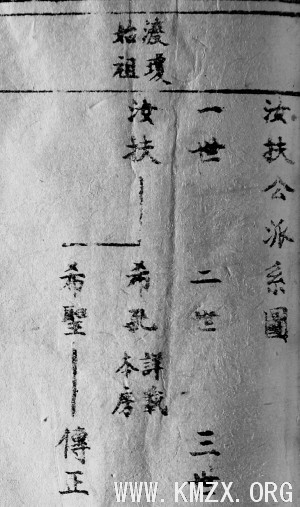 渡瓊
始祖
汝扶公派系圖
一世 二世 三世
汝扶 希孔 詳載
本房
希聖 傳正
WWW.KMZX.ORG